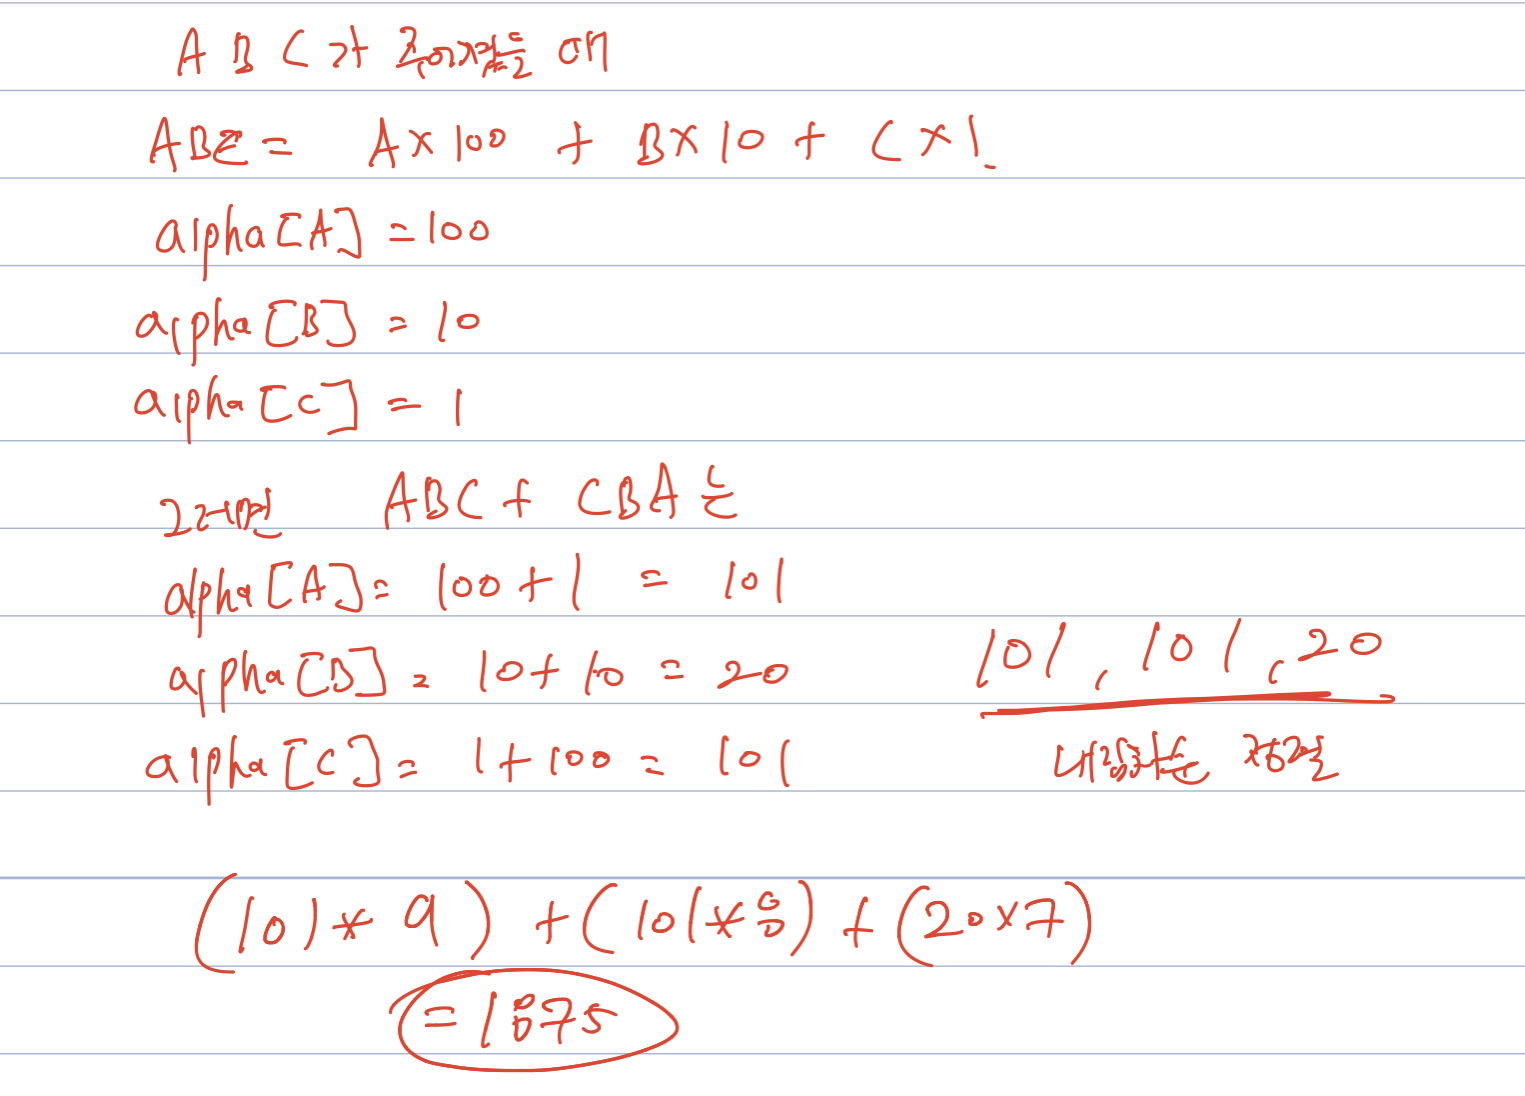 A B C가 주어졌을 때
ABC = A × 100 + B × 10 + C × 1.
alpha[A] = 100
alpha[B] = 10
alpha[C] = 1
ABC + CBA 는
alpha[A] = 100 + 1 = 101
alpha[B] = 10 + 10 = 20
alpha[C] = 1 + 100 = 101
101, 101, 20
내림차순 정렬
(101 * 9) + (101 * 8) + (20 × 7)
= 1875